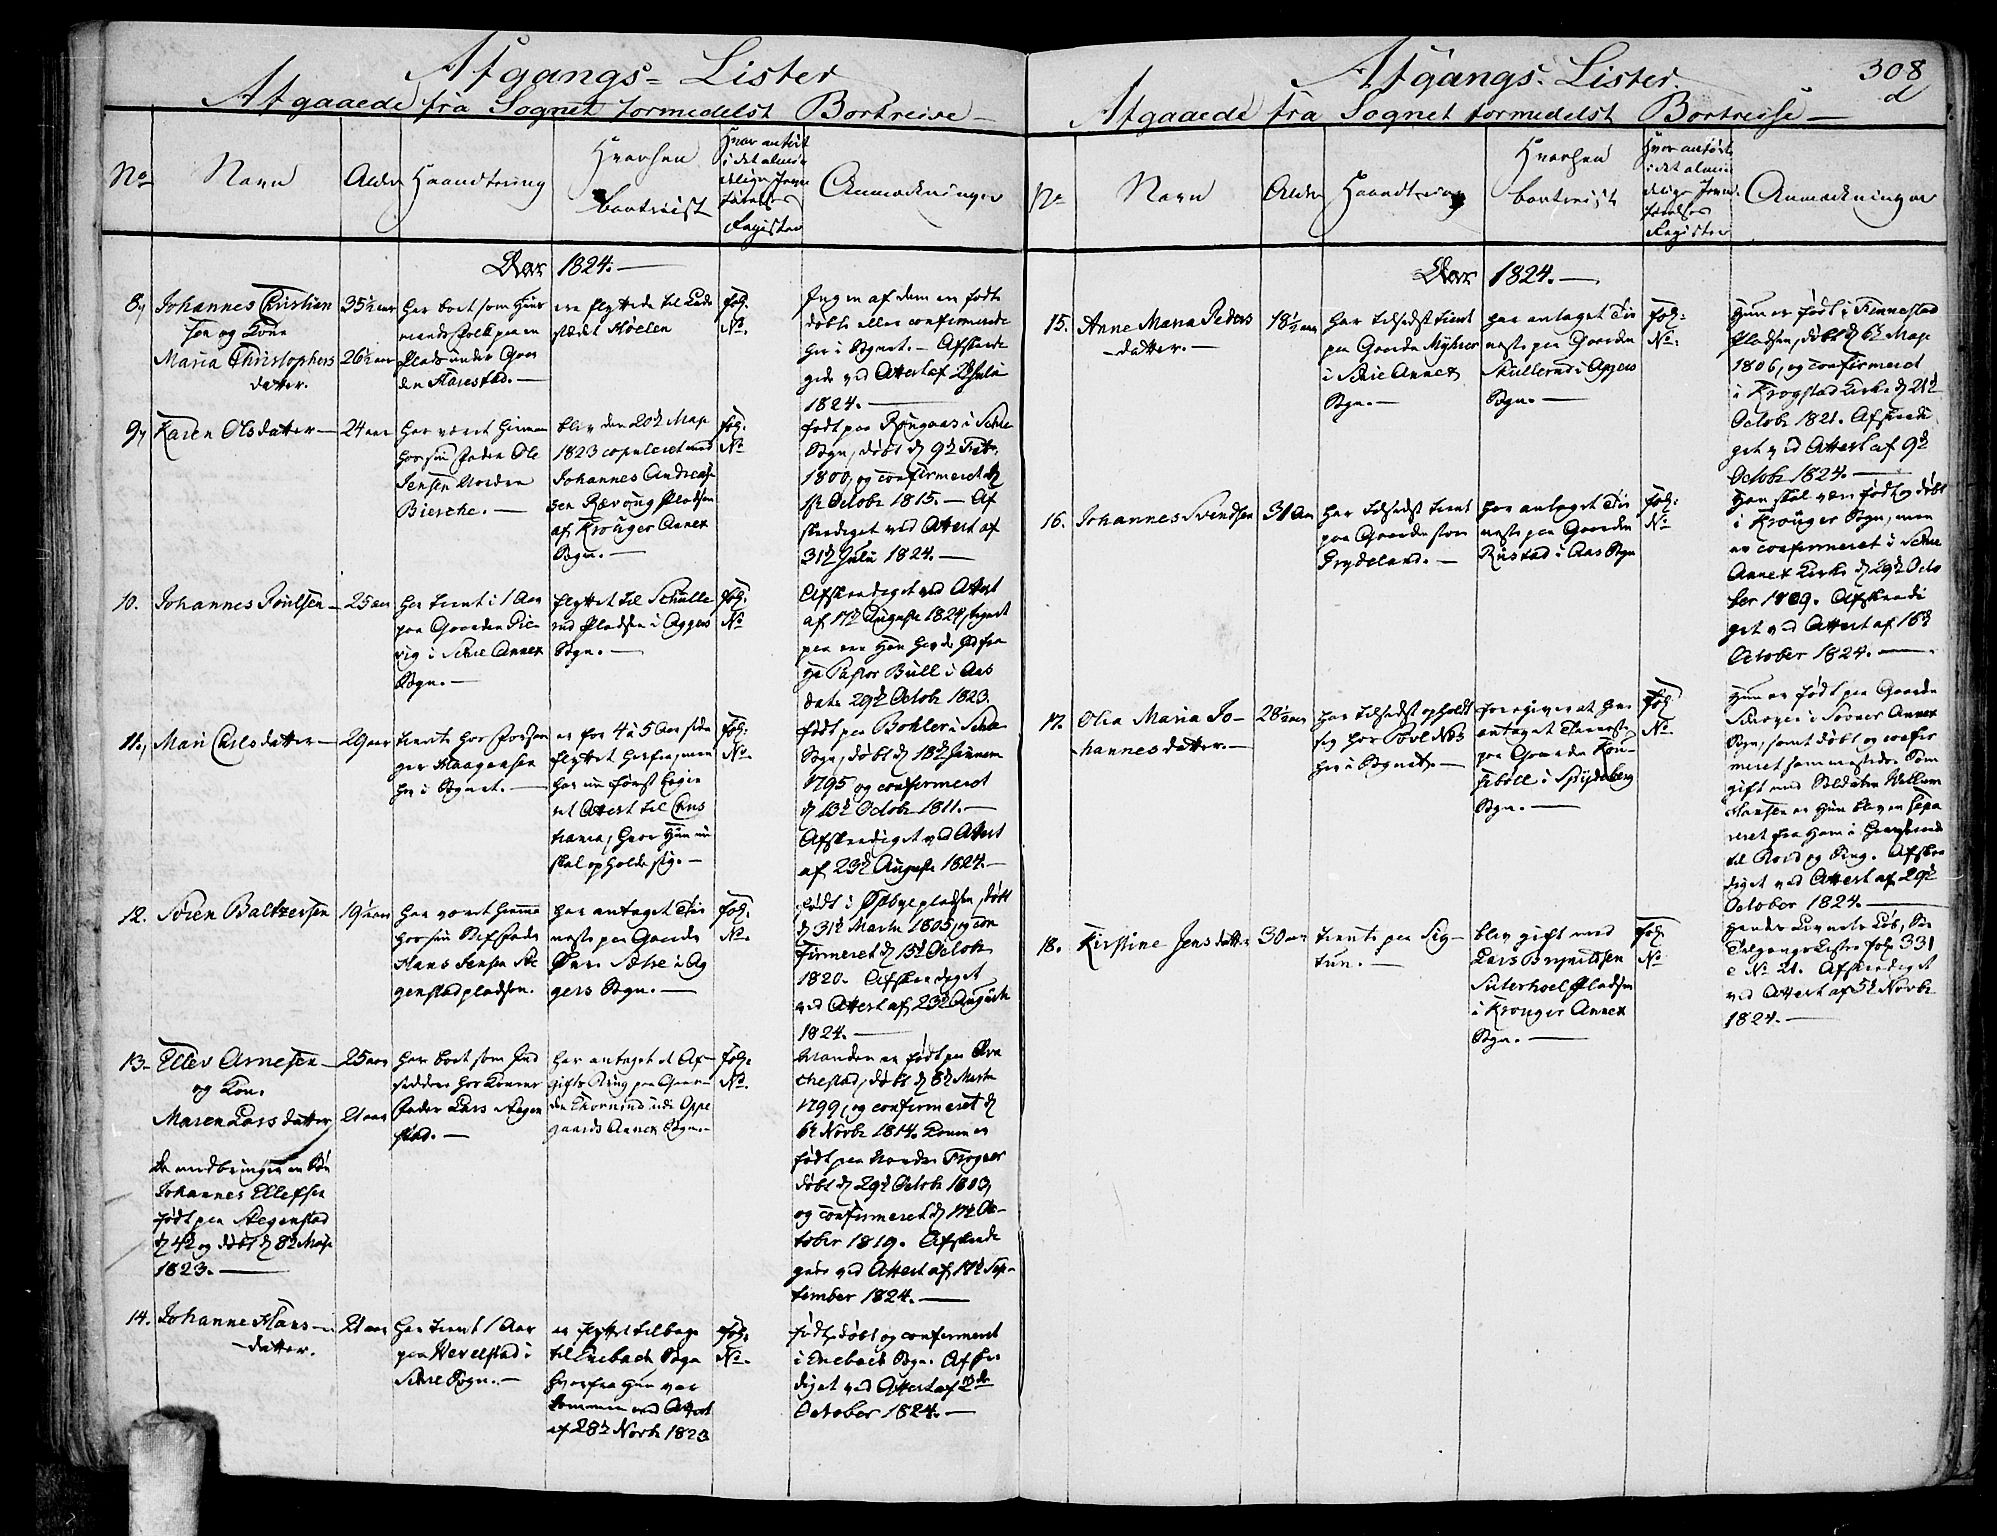 Afgangs-Lister
Afgaaede fra Sognet formedelst Bortreise
No
Navn
Alder
Haandtering
Hvorhen
bortreist
Hvor anført
i det almin
delige Jevn
førelses
Register
Anmærkninger
Aar 1824.
8,
Johannes Christian
sen og Kone
Maria Christophers
datter.
35½ aar
26½ aar
har boet som Huus
mands Folk paa en
Plads under Gaar
den Harestad.
ere flyttede til Lade
stædet Hølen
fol:
No.
Ingen af dem er fødte
døbte eller confirmerede
her i Sognet. Afskeede
gede ved Attest af 2de Julii
1824.
9,
Karen Olsdatter
24 aar
har været hiemme
hos sin Fader Ole
Jensen Nordre
Bierche.
blev den 20de Maji
1823 copuleret med
Johannes Andreas
sen Rævoug Pladsen
af Krouger Annex
Sogn.
fol:
No
født paa Rougaas i Schie
Sogn, døbt d 9de Febr.
1800, og confirmeret d
1ste Octobr 1815. Af
skeediget ved Attest af
31te Julii 1824.
10.
Johannes Poulsen
25 aar
har tient i 1 Aar
paa Gaarden Sie
vig i Schie Annex
Sogn.
flyttet til Schulle
rud Pladsen i Aggers
Sogn.
fol:
No
Afskeediget ved Attest
af 17de Augusti 1824, tegnet
paa een Han havde havt fra
Hr Pastor Bull i Aas
dat. 29de Octobr 1823.
11,
Mari Carlsdatter
29 aar
tiente hos Forpag
ger Haagensen
her i Sognet.
er for 4 à 5 Aar siden
flyttet herfra, men
har nu først begie
ret Attest til Chris
tiania, hvor Hun nu
skal opholde sig.
fol:
No.
født paa Bøhler i Schie
Sogn, døbt d 18de Januarii
1795 og confirmeret
d 13de Octobr 1811.
Afskeediget ved Attest
af 23de Augusti 1824.
12.
Søren Baltzersen
19 aar
har været hiemme
hos sin Stiffader
Hans Jensen Ste
genstadpladsen.
har antaget Tie
neste paa Gaarden
Øvre Sætre i Ag
gers Sogn.
fol:
No.
født i Østbyepladsen, døbt
d 31te Martii 1805, og con
firmeret d 15de Octobr
1820. Afskeediget
ved Attest af 23de Augusti
1824.
13.
Ellev Arnesen
og Kone
Maren Larsdatter,
De medbringer en Søn
Johannes Ellefsen
født paa Stegenstad
d 4de og døbt d 8de Maji
1823.
25 aar
21 aar
har boet som Ind
sidder hos Konens
Fader Lars Stegen
stad.
har antaget et Af-
gifts Brug paa Gaar-
den Thornrud udi Oppe
gaards Annex Sogn.
fol:
No.
Manden er født paa Bra
chestad, døbt d 8de Martii
1799, og confirmeret d
6te Novbr 1814. Konen er
født paa Nordre Frogner
døbt d 29de Octobr 1803,
og confirmeret d 17de Oc-
tober 1819. Afskeede
gede ved Attest af 17de Sep-
tember 1824.
14.
Johanne Hans-
datter.
21 aar
har tient 1 Aar
paa Wevelstad i
Schie Sogn.
er flyttet tilbage
til Enebach Sogn
hvorfra Hun var
kommen ved Attest
af 28de Novbr 1823
fol:
No.
født, døbt og confirmeret
i Enebach Sogn. Afskee
diget ved Attest af 2den
October 1824.
Afgangs-Lister.
308
d
Afgaaede fra Sognet formedelst Bortreise
No
Navn
Alder
Haandtering
Hvorhen
bortreist
Hvor anført
i det almin
delige Jevn
førelses
Register
Anmærkninger
Aar 1824.
15.
Anne Maria Peders
datter.
18½ aar
har tilsidst tient
paa Gaarden Myhrer
i Schie Annex
Sogn.
har antaget Tie
neste paa Gaarden
Skullerud i Aggers
Sogn.
fol:
No:
Hun er født i Finnestad
Pladsen, døbt d 6te Maji
1806, og confirmeret
i Krogstad Kirke d 21de
Octobr 1821. Afskeedi
get ved Attest af 9de
Octobr 1824.
16.
Johannes Svendsen
31 Aar
har tilsidst tient
paa Gaarden store
Grydeland.
har antaget Tie
neste paa Gaarden
Rustad i Aas Sogn
fol:
No
Han skal være født og døbt
i Krouger Sogn, men
er confirmeret i Schie
Annex Kirke d 29de Octo
ber 1809. Afskeedi
get ved Attest af 16de
October 1824.
17.
Olia Maria Jo-
hannesdatter.
28½ aar
har tilsidst opholdt
sig hos Povel Næs
her i Sognet.
foregiver at have
antaget Tieneste
paa Gaarden
i Spydeberg
Sogn.
fol:
No
Hun er født paa Gaarden
i Sooner Annex
Sogn, samt døbt og confir
meret sammesteds. Som
gift med Soldaten Willum
Hansen er Hun bleven sepa
reret fra Ham i Henseende
til Bord og Seng. Afskee
diget ved Attest af 29de
October 1824.
18.
Kirstine Jensdatter
30 aar
tiente paa Sig-
tun.
blev gift med
Lars Brynildsen
Sæterhoel Pladsen
i Krouger Annex
Sogn.
fol:
No.
Hendes Levnets Løb, See
Tilgangs Listen fol: 331
c No 21. Afskeediget
ved Attest af 5te Novbr
1824.